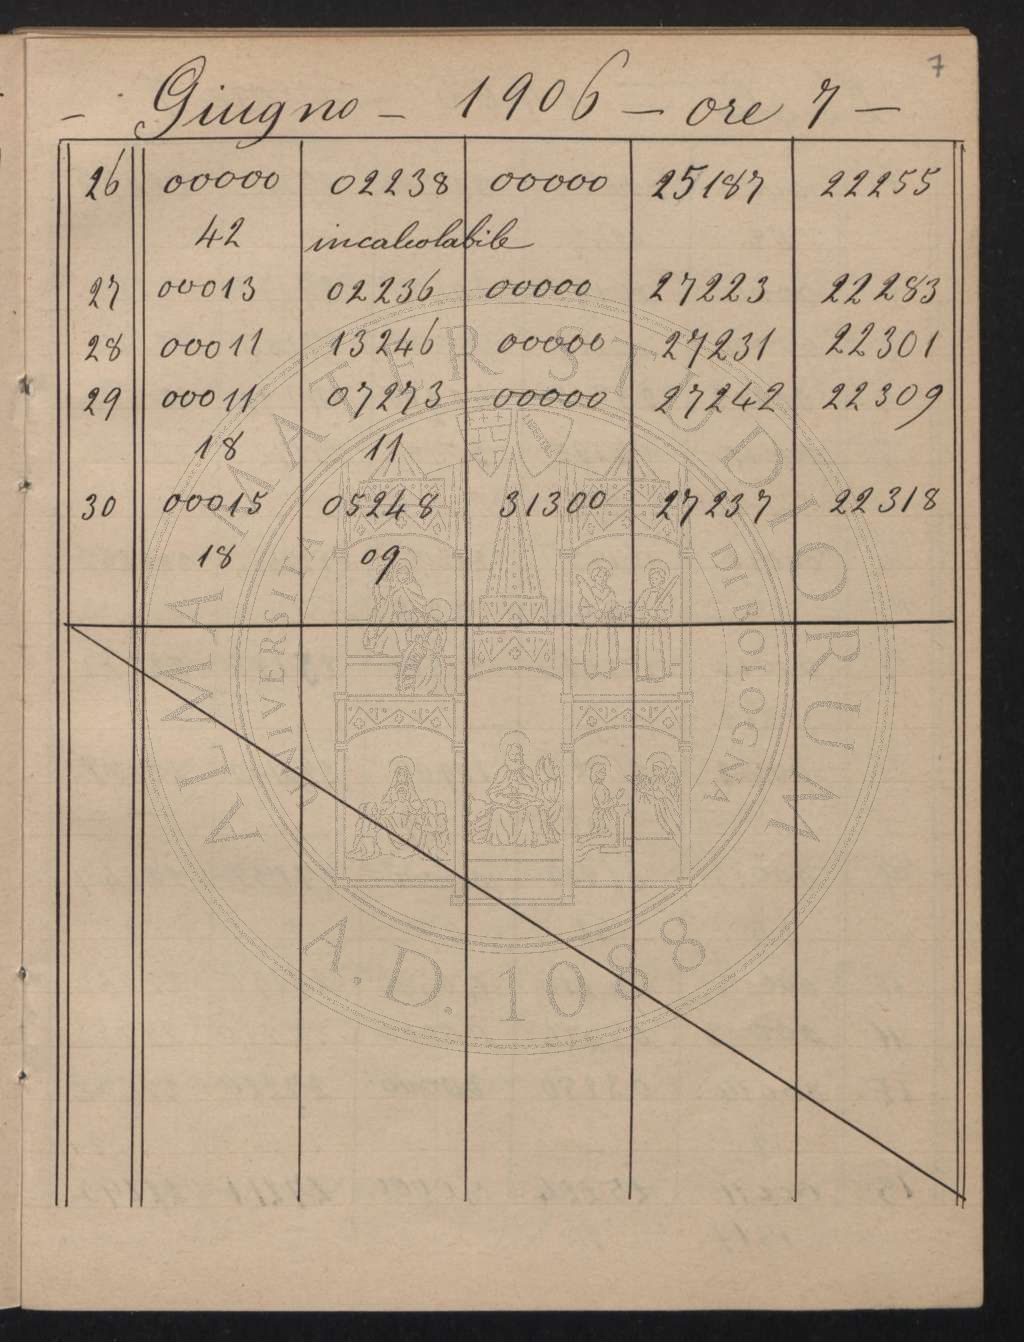 7
- Giugno - 1906 - ore 7 -
26 00000 02238 00000 25187 22255
42 incalcolabile
27 00013 02236 00000 27223 22283
28 00011 13246 00000 27231 22301
29 00011 07273 00000 27242 22309
18 11
30 00015 05248 31300 27237 22318
18 09
ALMA MATER STUDIORUM
UNIVERSITÀ DI BOLOGNA
A.D. 1088